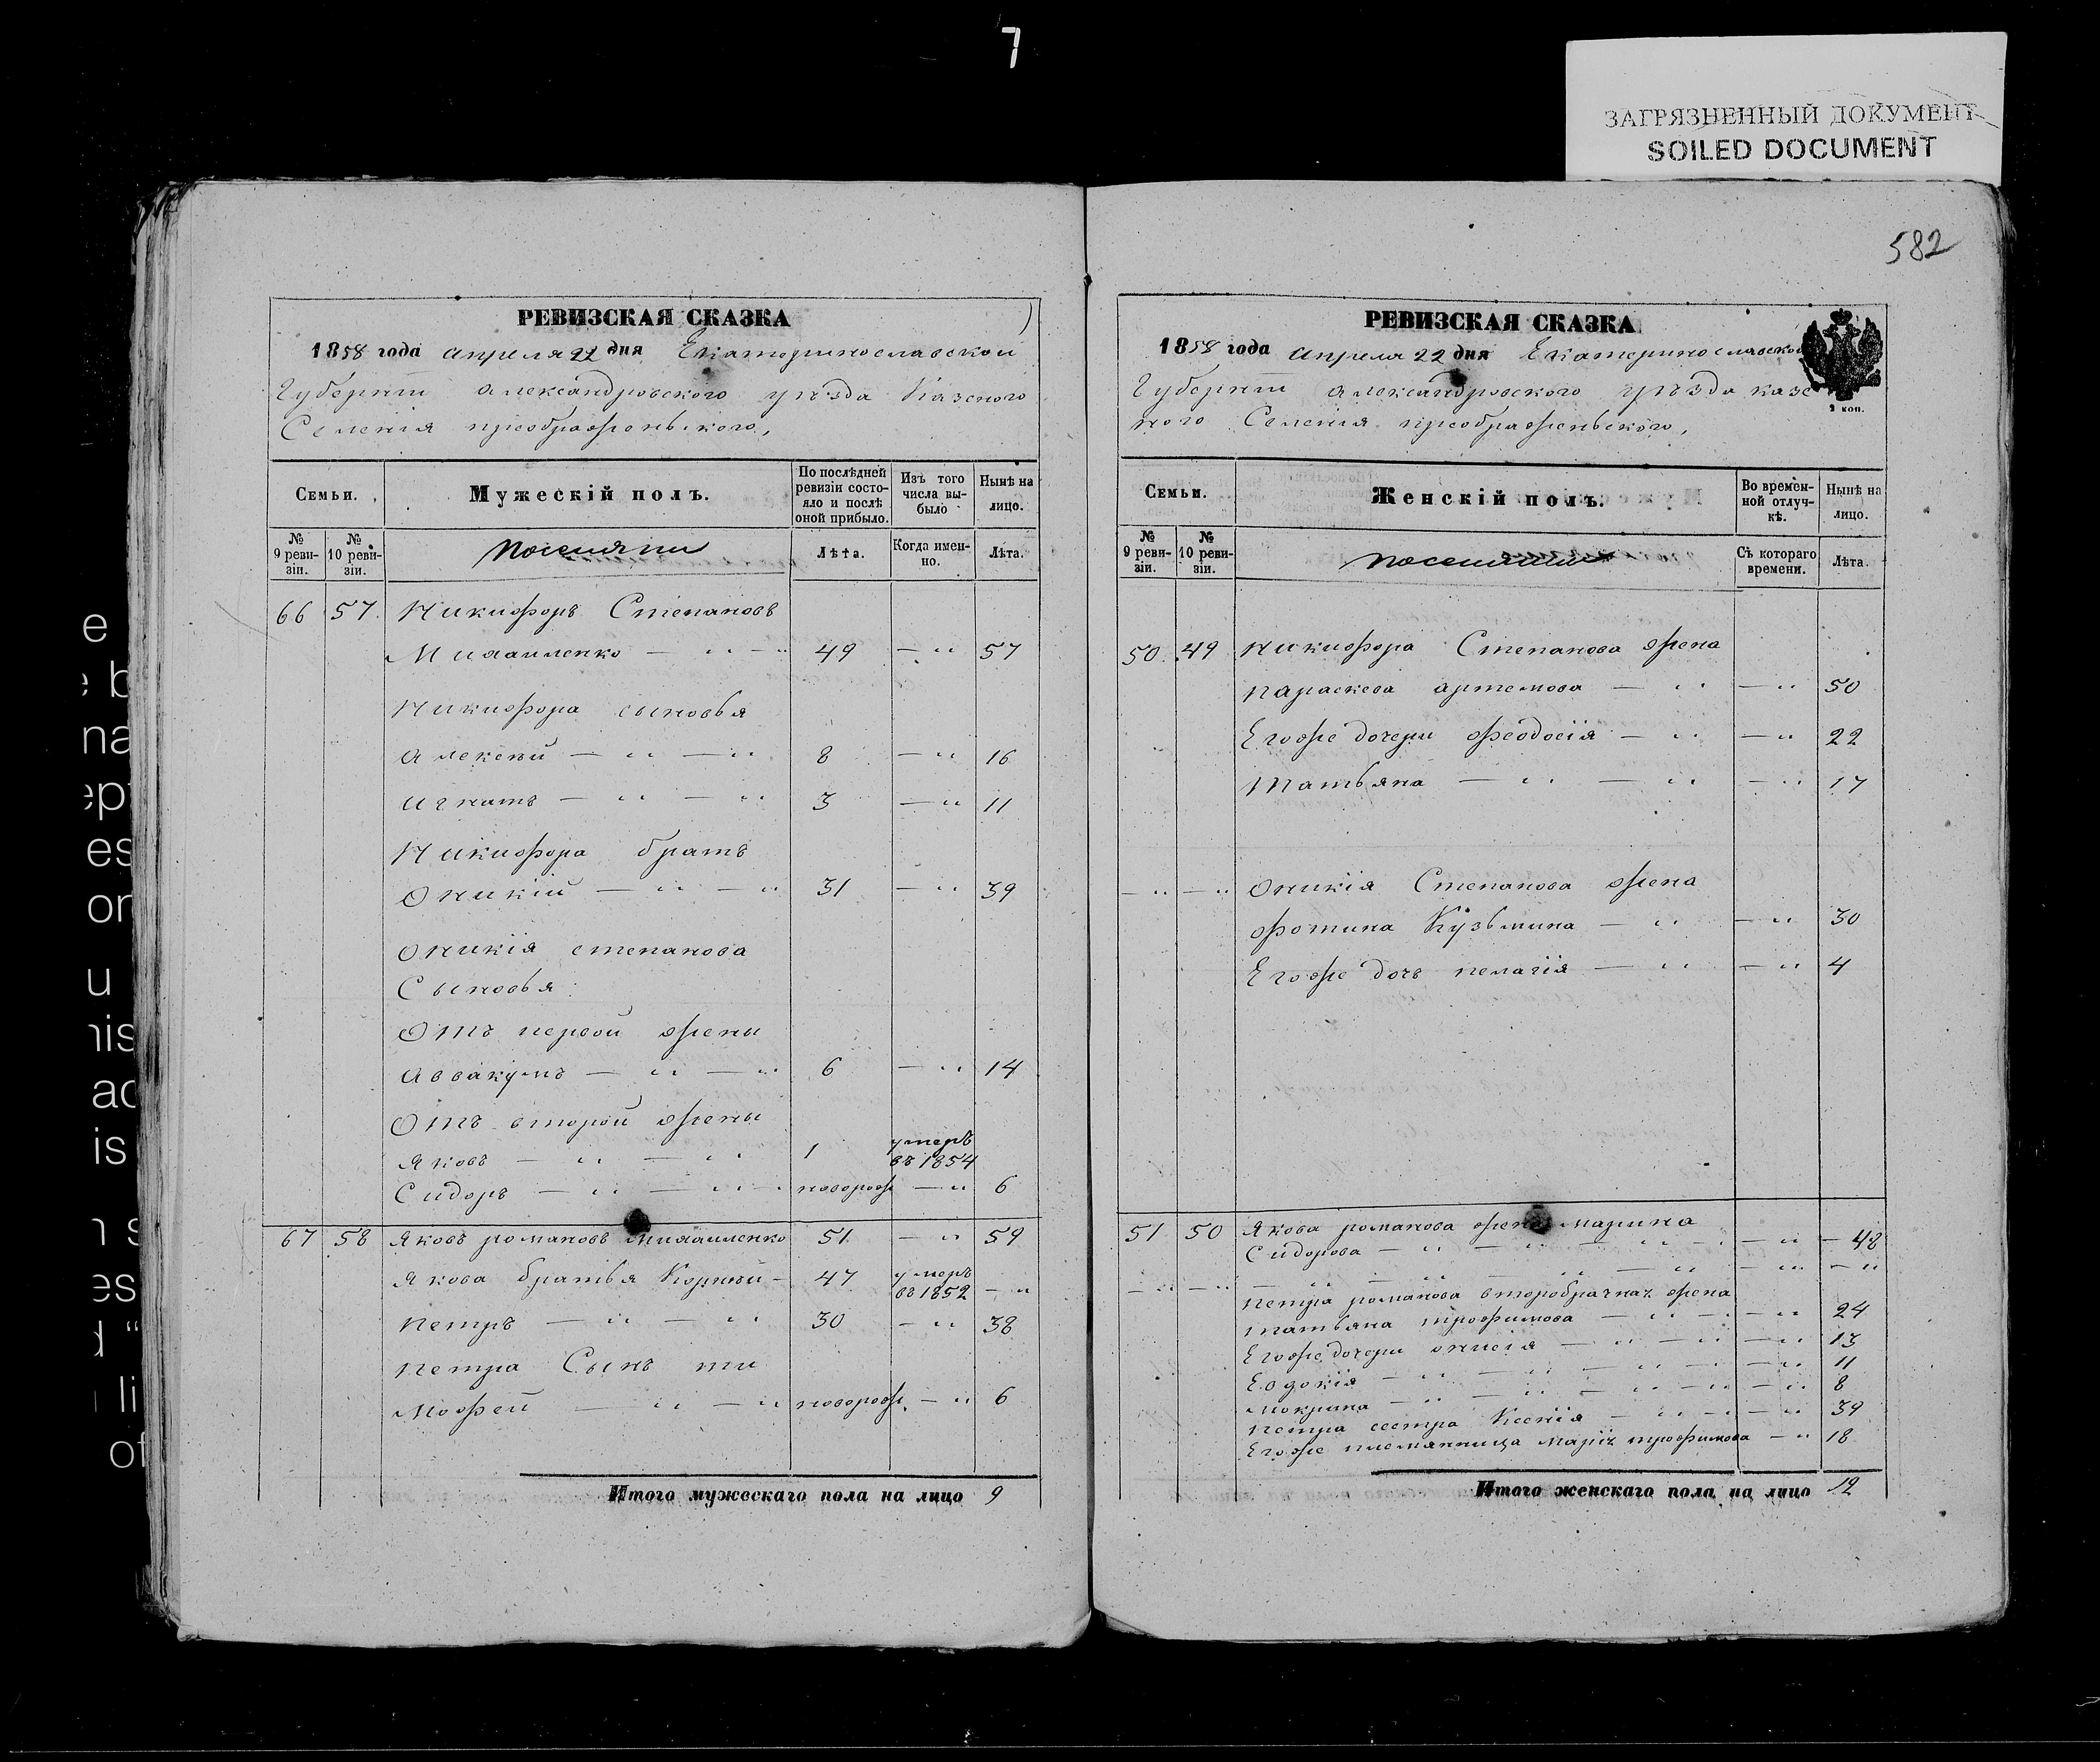 7
ЗАГРЯЗНЕННЫЙ ДОКУМЕНТ
SOILED DOCUMENT
582
РЕВИЗСКАЯ СКАЗКА
1858 года апреля 22 дня Екатеринославской
Губернiи александровского уѣзда Казеного
Селенiя преображеньского,
Семьи.
Мужескій полъ.
По послѣдней ревизіи состояло и послѣ оной прибыло.
Изъ того числа выбыло
Нынѣ на лицо.
№ 9 ревизіи.
№ 10 ревизіи.
поселяни
Лѣта.
Когда именно.
Лѣта.
66 57 Никифоръ Степановъ
Михаиленко — " — " 49 — " 57
Никифора сыновья
алексей — " — " 8 — " 16
игнатъ — " — " 3 — " 11
Никифора братъ
Оникій — " — " 31 — " 39
Оникія степанова
Сыновья
Отъ первой жены
аввакумъ — " — " 6 — " 14
Отъ второй жены
Яковъ — " — " 1 умеръ въ 1854
Сидоръ — " — " — новорож — " 6
67 58 Яковъ романовъ михаиленко 51 — " 59
Якова братья Корней — 47 умеръ въ 1852 — "
петръ — " — " 30 — " 38
петра Сынъ ти
мофей — " — " новорож. — " 6
Итого мужескаго пола на лицо 9
РЕВИЗСКАЯ СКАЗКА
1858 года апреля 22 дня Екатеринославской
Губернiи александровского уѣзда казе
ного Селенiя преображеньского,
2 коп.
Семьи.
Женскій полъ.
Во временной отлучкѣ.
Нынѣ на лицо.
№ 9 ревизіи.
№ 10 ревизіи.
Съ котораго времени.
Лѣта.
50 49 никифора Степанова жена
параскева артемова — " — " 50
Егоже дочери феодосія — " — " 22
татьяна — " — " — " 17
— " — " Оникія Степанова жена
фотина Кузьмина — " — " 30
Егоже дочь пелагія — " — " 4
51 50 Якова романова жена марина
Сидорова — " — " — " — " — 48
— " — " — " — " — " — " — " — "
петра романова второбрачная жена
татьяна трофимова — " — " 24
Егоже дочери онисія — " — " — " 13
Евдокія — " — " — " — " 11
мокрина — " — " — " — " 8
петра сестра Ксенія — " — " — " 39
Егоже племянница марія трофимова — " 18
Итого женскаго пола на лицо 12